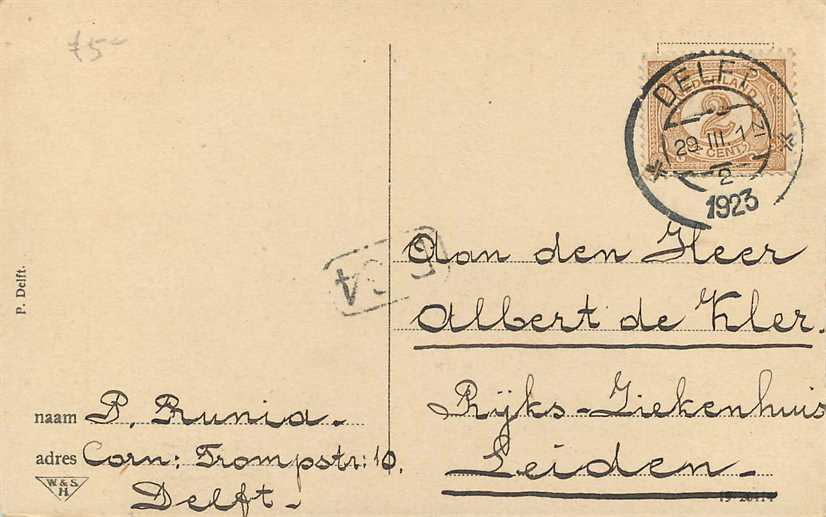 75-
DELFT
NEDERLAND
2
CENT
29 III. 1
2
1923
Aan den Heer
Albert de Kler.
Rijks-Ziekenhuis
Leiden.-
P. Delft.
naam P. Runia.-
adres Corn: Trompstr: 10,
Delft.-
W. & S.
H